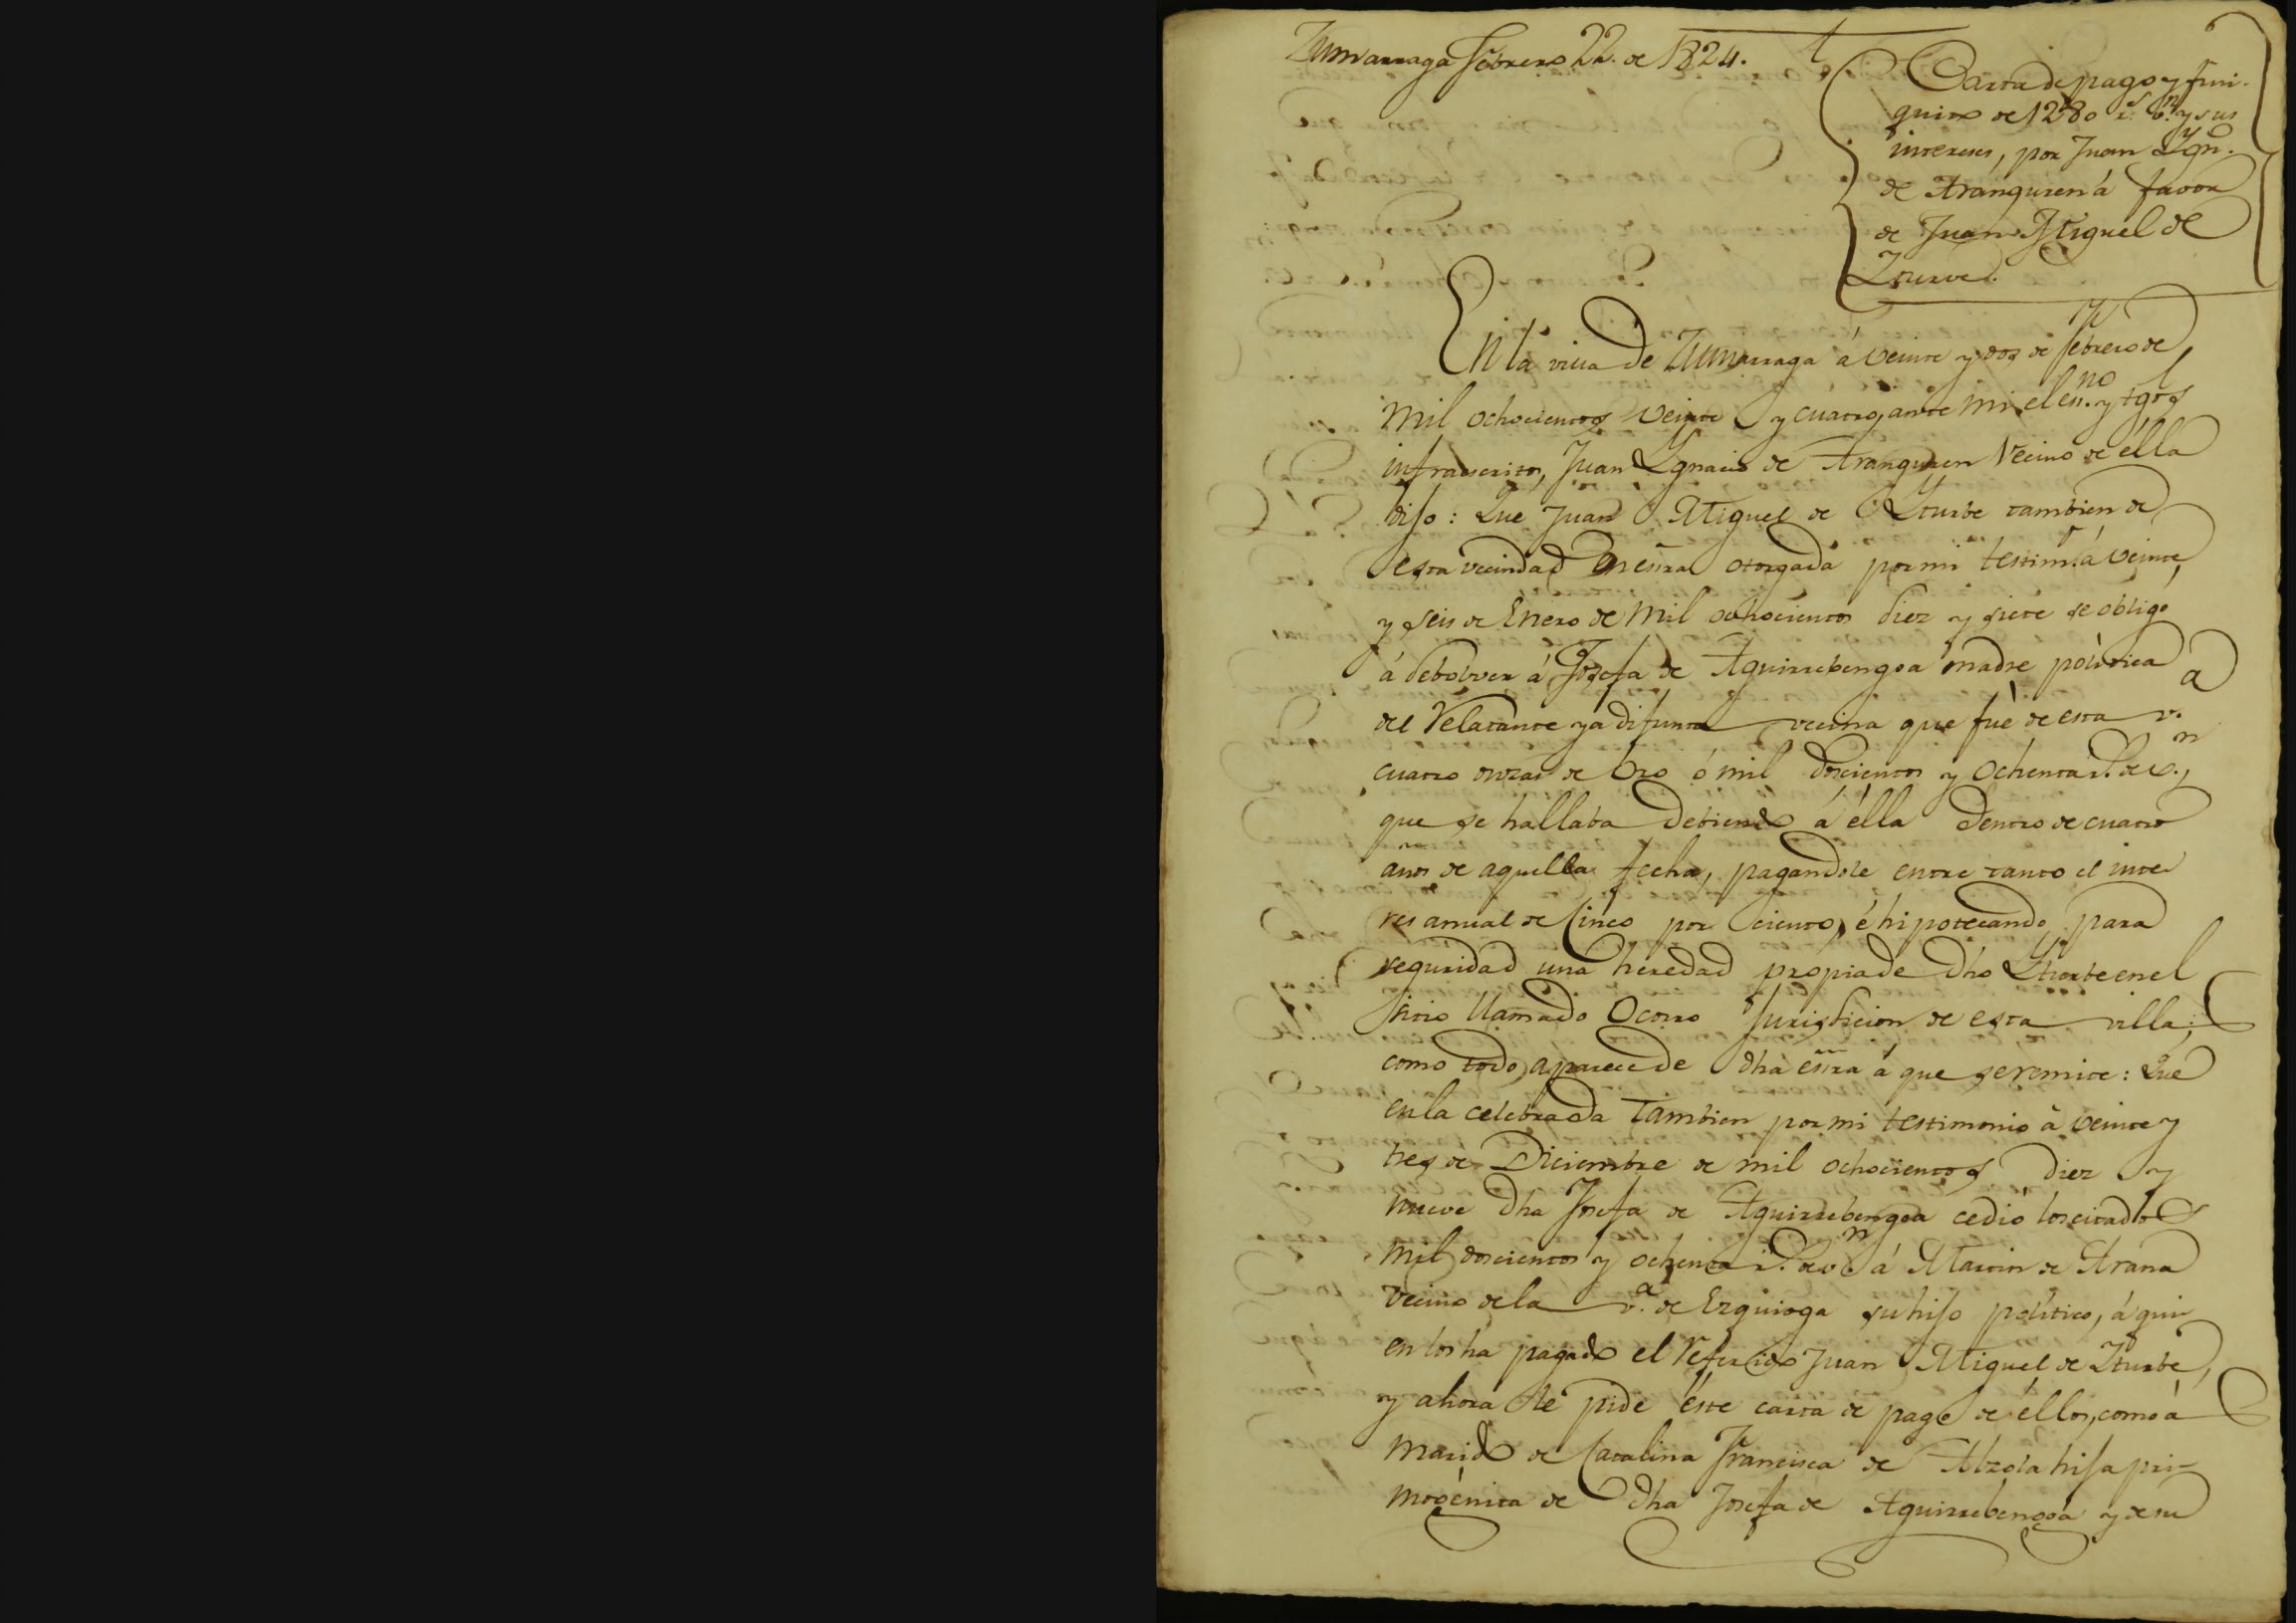 Zumarraga Febrero 22. de 1824.
Carta de pago y fini-
quito de 1280 r.s v.n y sus
intereses, por Juan Ygn.o
de Aranguren á favor
de Juan Miguel de
Yturve.
En la villa de Zumarraga á veinte y dos de febrero de
mil ochocientos veinte y cuatro, ante mi el es.no y tgos
infraescritos, Juan Ygnacio de Aranguren vecino de élla
dijo: Que Juan Miguel de Yturbe tambien de
esta vecindad en esc̃ra otorgada por mi testim.o á veinte
y seis de Enero de mil ochocientos diez y siete se obligó
á debolver á Josefa de Aguirrebengoa madre política
del Relatante ya difunta vecina que fué de esta v.a
cuatro onzas de Oro ó mil doscientos y ochenta r.s de v.n,
que se hallaba debiendo á élla dentro de cuatro
años de aquella fecha, pagandole entre tanto el inte-
res anual de cinco por ciento, é hipotecando para
seguridad una heredad propia de dho Yturbe en el
sitio llamado Ocorro jurisdicion de esta villa;
como todo aparece de dha esc̃ra á que se remite: Que
en la celebrada tambien por mi testimonio á veinte y
tres de Diciembre de mil ochocientos diez y
nueve dha Josefa de Aguirrebengoa cedió los citados
mil doscientos y ochenta r.s de v.n á Martin de Arana
vecino de la v.a de Ezquioga su hijo político, á qui-
en los ha pagado el Referido Juan Miguel de Yturbe,
y ahora le pide éste carta de pago de éllos, como á
marido de Catalina Francisca de Alzola hija pri-
mogénita de dha Josefa de Aguirrebengoa y de su